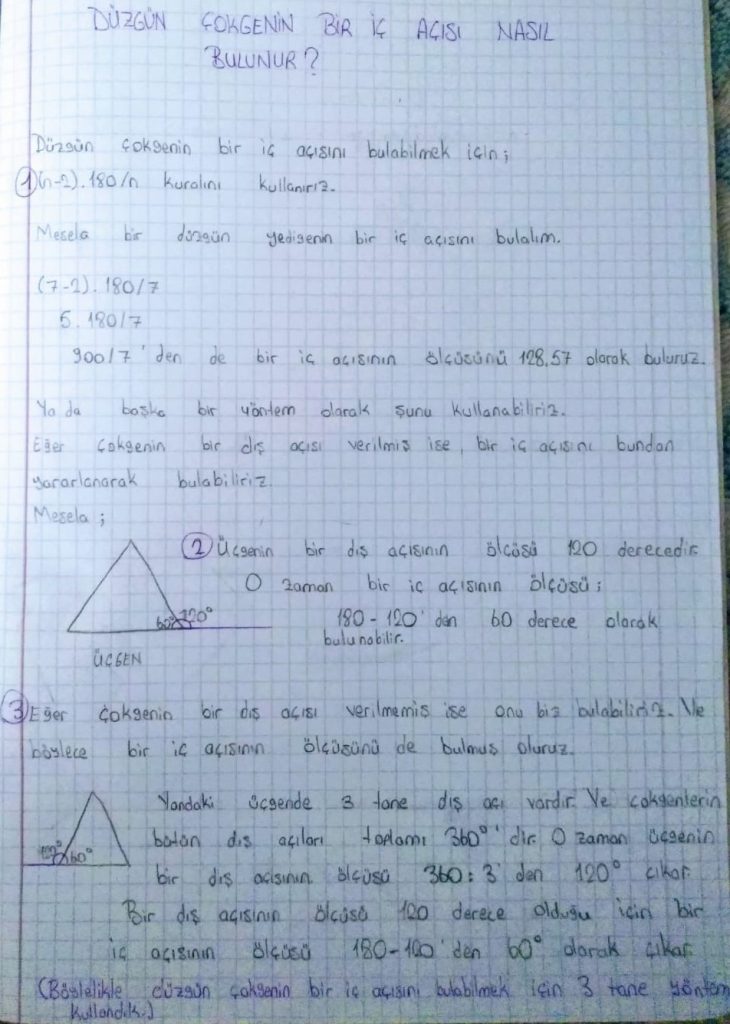 DÜZGÜN ÇOKGENİN BİR İÇ AÇISI NASIL
BULUNUR?
Düzgün çokgenin bir iç açısını bulabilmek için;
1 (n-2).180/n kuralını kullanırız.
Mesela bir düzgün yedigenin bir iç açısını bulalım.
(7-2).180/7
5.180/7
900/7'den de bir iç açısının ölçüsünü 128,57 olarak buluruz.
Ya da başka bir yöntem olarak şunu kullanabiliriz.
Eğer çokgenin bir dış açısı verilmiş ise, bir iç açısını bundan
yararlanarak bulabiliriz.
Mesela;
2 Üçgenin bir dış açısının ölçüsü 120 derecedir.
O zaman bir iç açısının ölçüsü;
60° 120°
180-120'den 60 derece olarak
bulunabilir.
ÜÇGEN
3 Eğer çokgenin bir dış açısı verilmemiş ise onu biz bulabiliriz. Ve
böylece bir iç açısının ölçüsünü de bulmuş oluruz.
Yandaki üçgende 3 tane dış açı vardır. Ve çokgenlerin
bütün dış açıları toplamı 360°'dir. O zaman üçgenin
120° 60°
bir dış açısının ölçüsü 360:3'den 120° çıkar.
Bir dış açısının ölçüsü 120 derece olduğu için bir
iç açısının ölçüsü 180-120'den 60° olarak çıkar.
(Böylelikle düzgün çokgenin bir iç açısını bulabilmek için 3 tane yöntem
kullandık.)